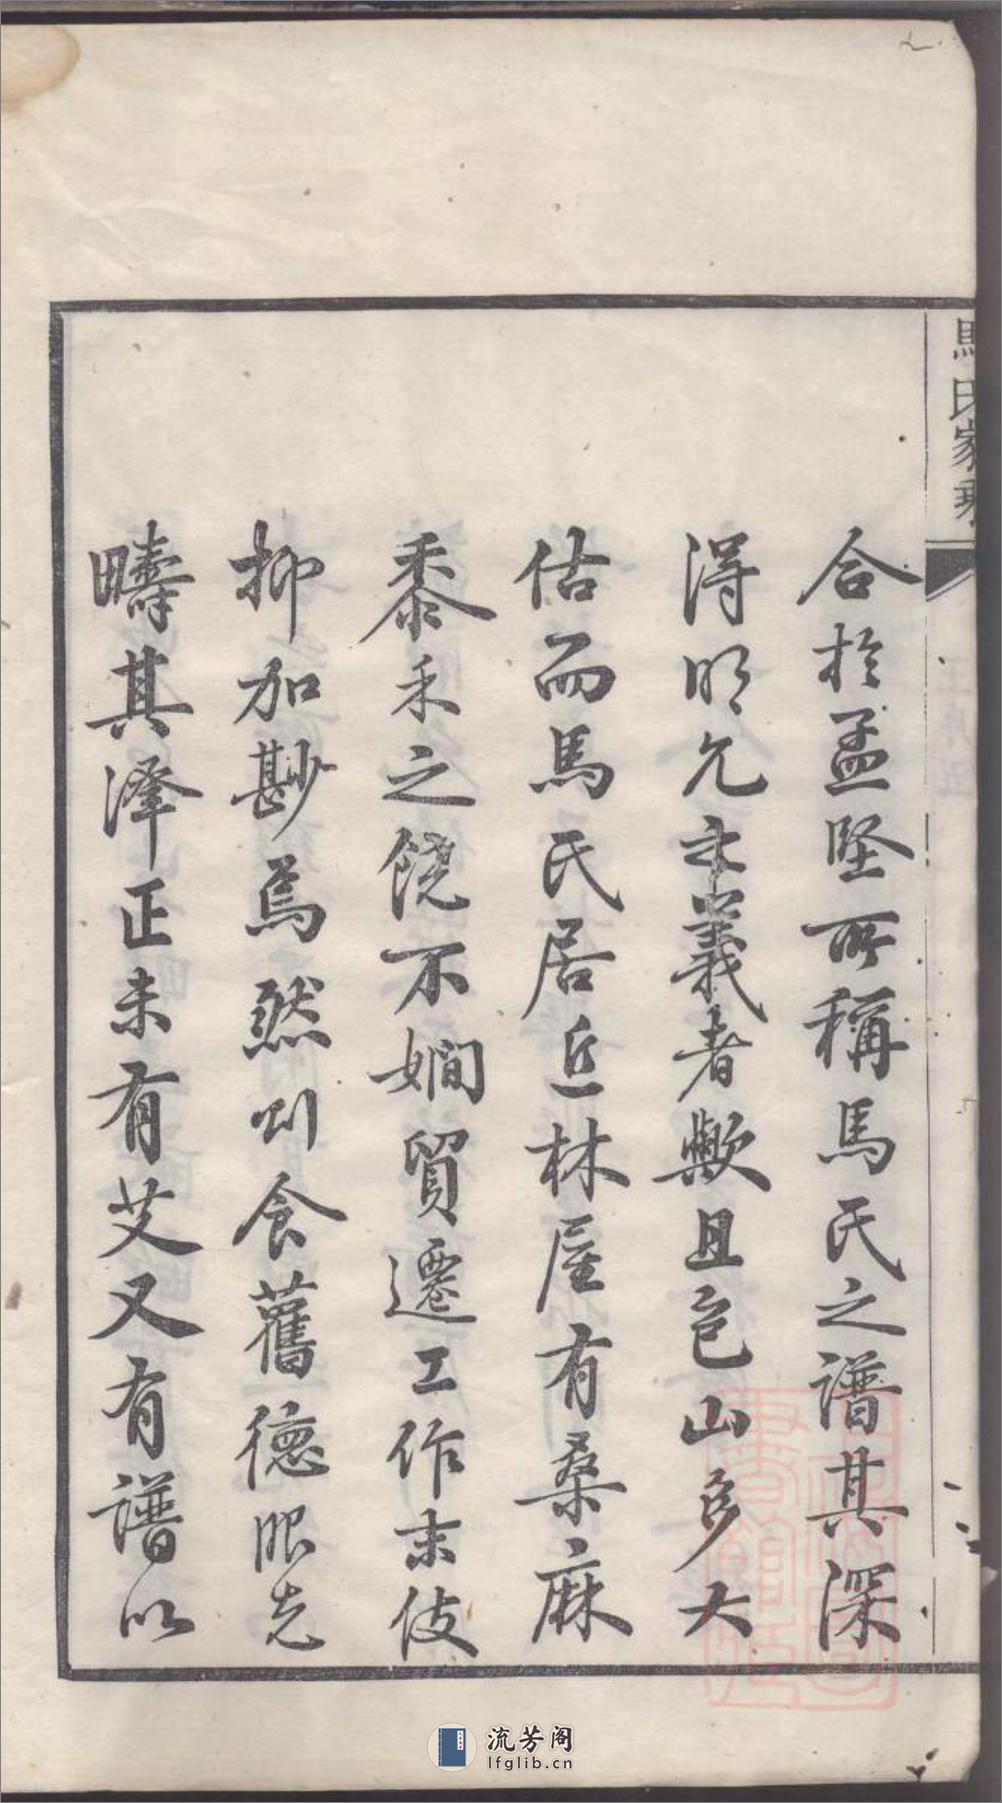 馬氏家乘
合於孟堅所稱馬氏之譜其深
得明允之義者歟且邑山多大
估而馬氏居近林屋有桑麻
黍禾之饒不嫻貿遷工作末伎
抑加尠焉然則食舊德服先
疇其澤正未有艾又有譜以
流芳阁
lfglib.cn